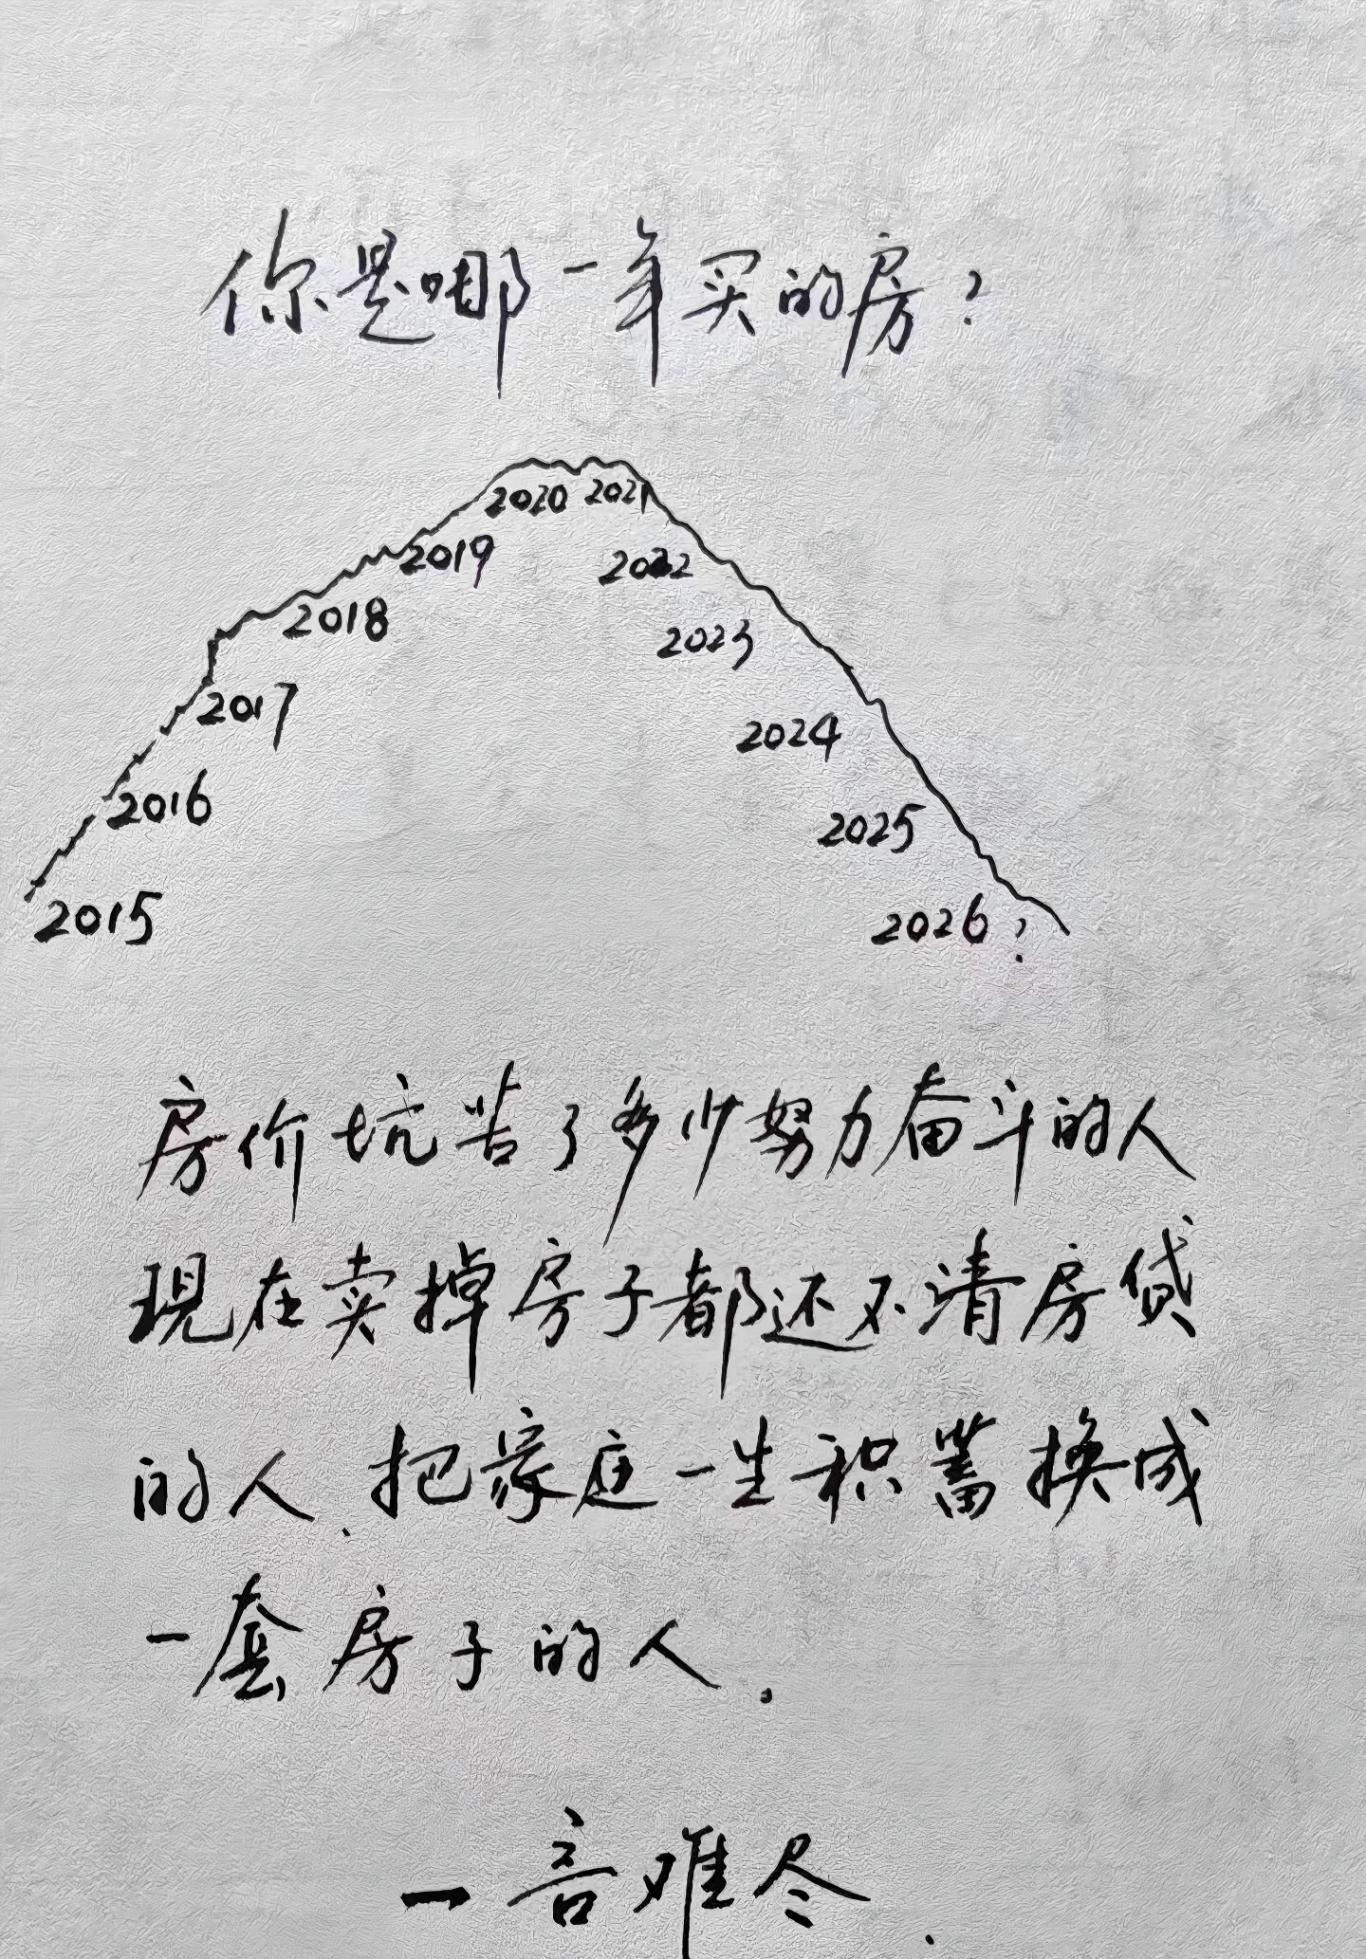 你是哪一年买的房?
2020 2021
2019
2022
2018
2023
2017
2024
2016
2025
2015
2026?
房价坑苦了多少努力奋斗的人
现在卖掉房子都还不清房贷
的人、把家庭一生积蓄换成
一套房子的人.
一言难尽.